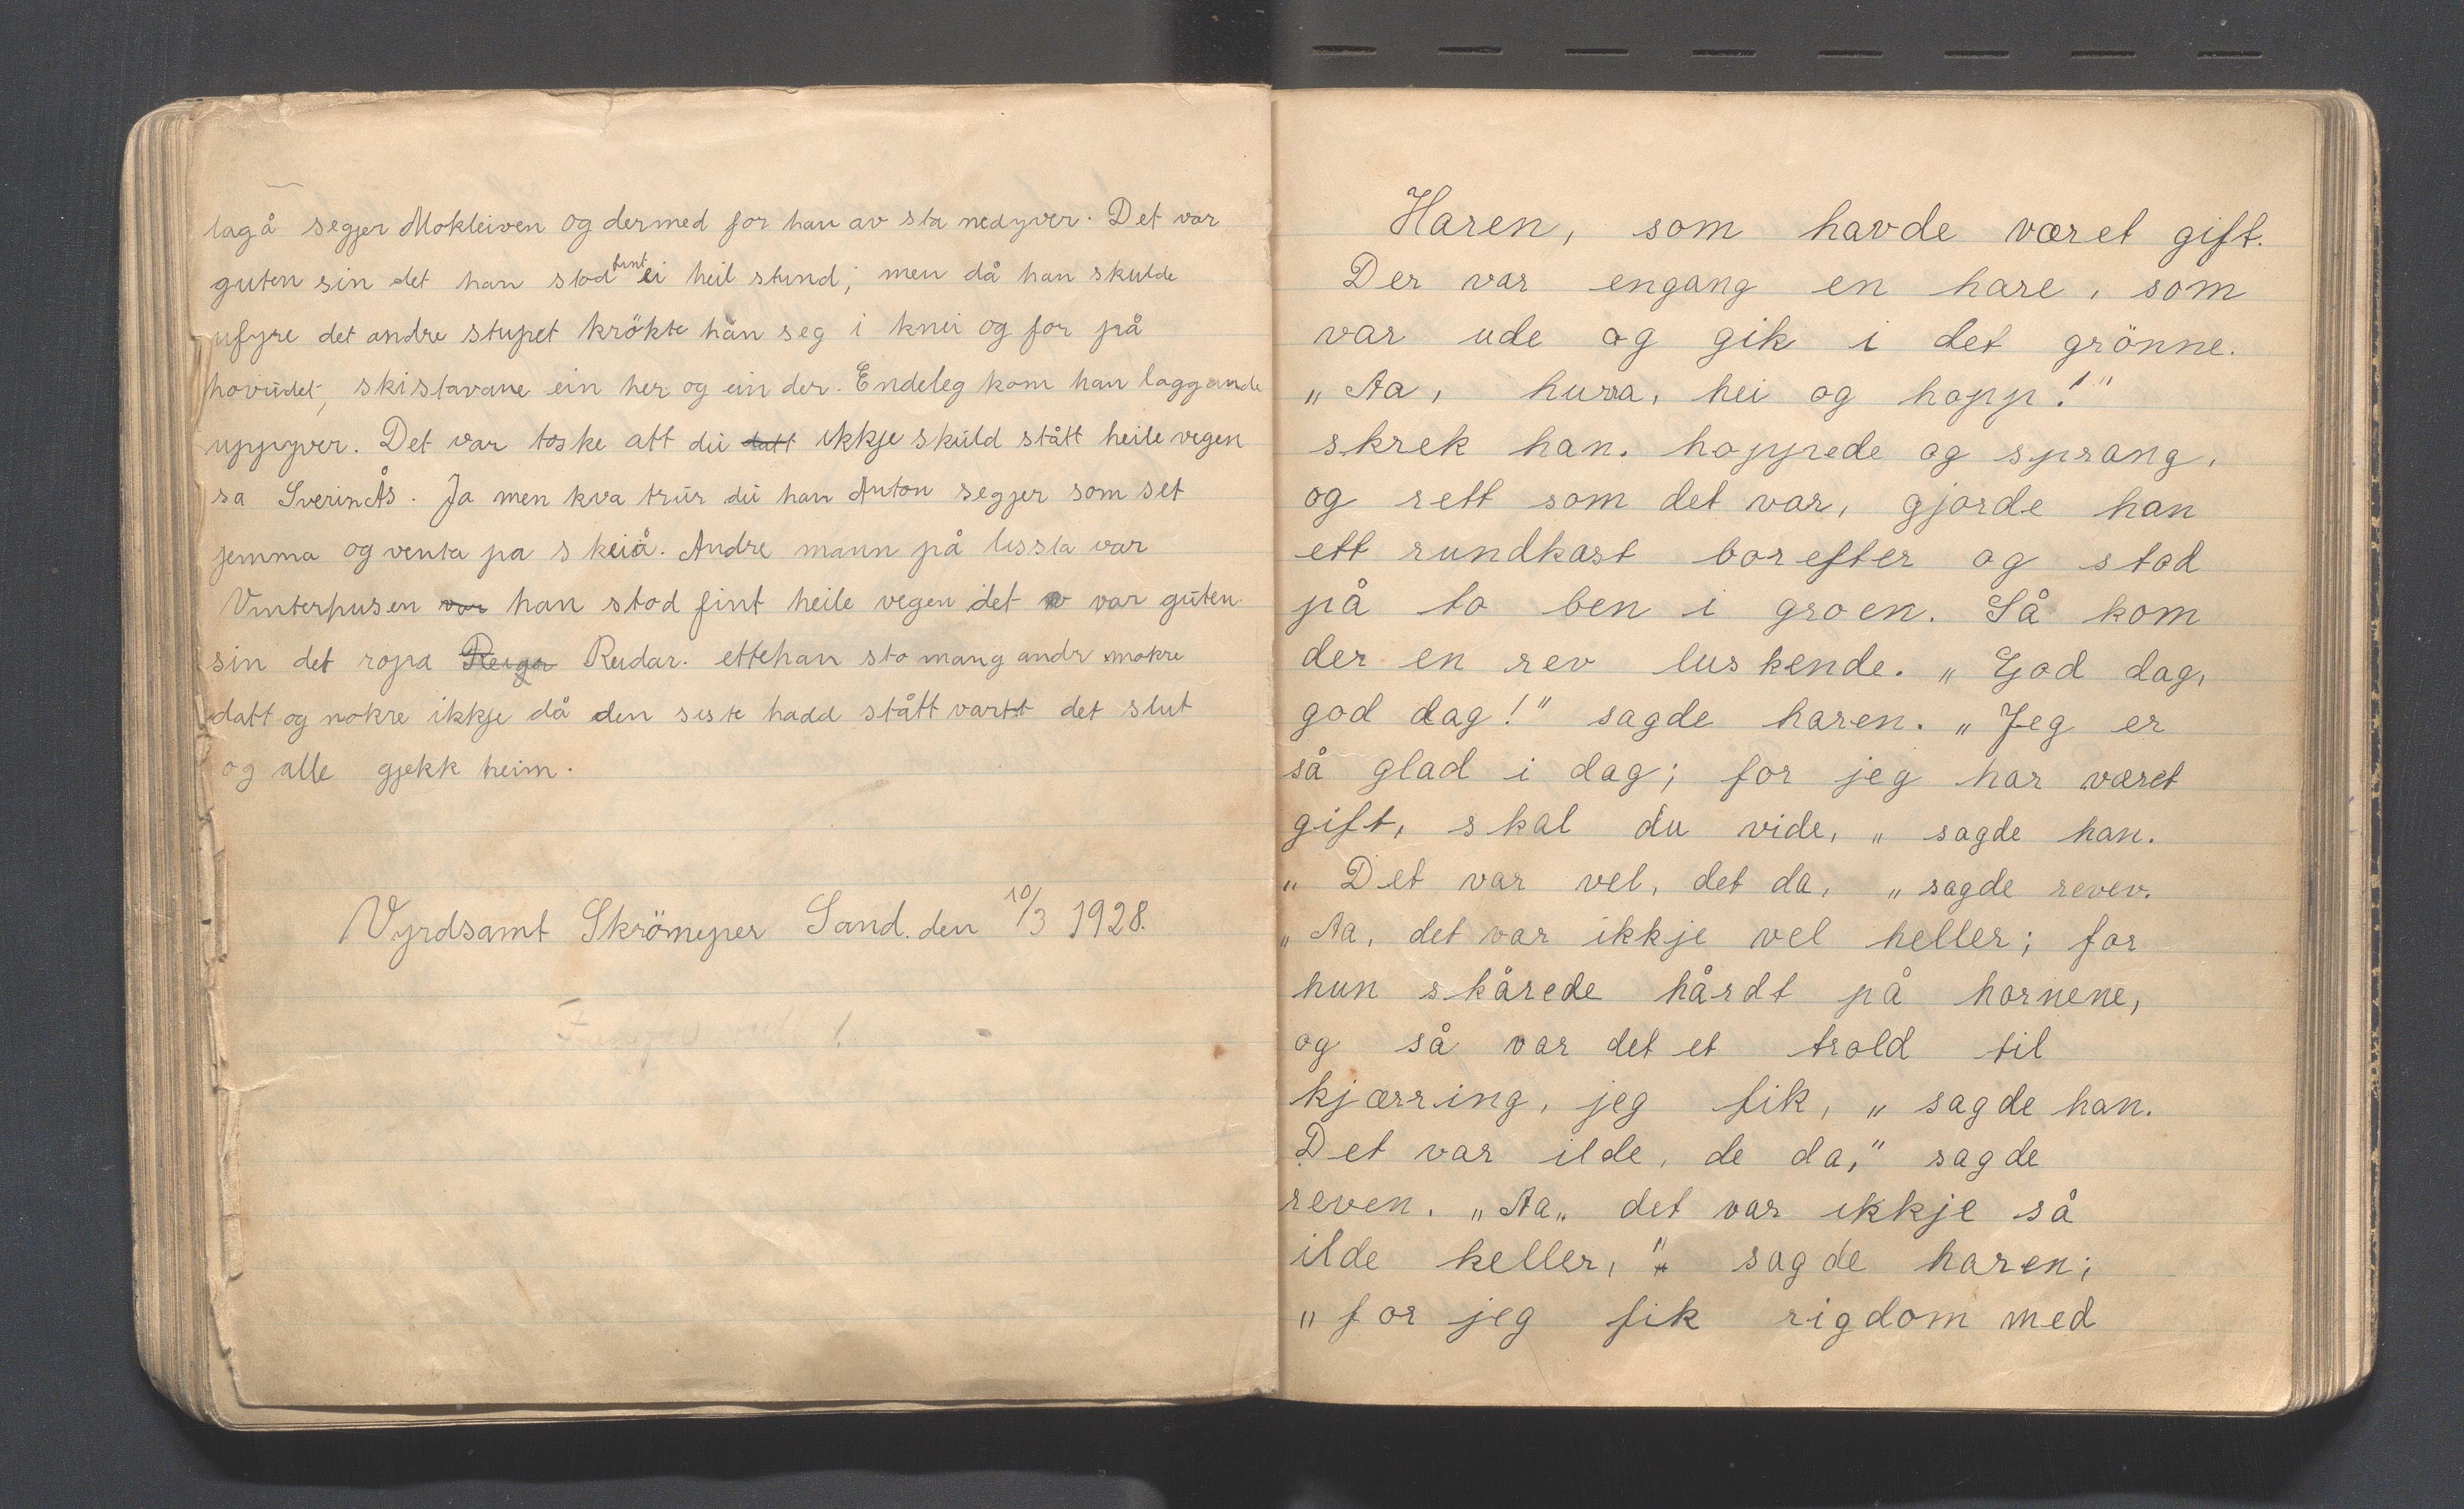 lagå segjer Mokleiven og dermed for han av sta nedyver. Det var
guten sin det han stod fint ei heil stund; men då han skulde
ufyre det andre stupet krökte han seg i knei og for på
hovudet, skistavane ein her og ein der. Endeleg kom han laggande
uppyver. Det var toske att du datt ikkje skuld stått heile vegen
sa Sverincts. Ja men kva trur du han Anton segjer som set
jemma og venta pa skeiå. Andre mann på lissta var
Vinterhusen var han stod fint heile vegen det var guten
sin det ropa Reiga Reidar. ettehan sto mang andr nokre
datt og nokre ikkje då den siste hadd stått vartt det slut
og alle gjekk heim.
Vyrdsamt Skrömeper Sand. den 10/3 1928.
Haren, som havde været gift.
Der var engang en hare, som
var ude og gik i det grönne.
„Aa, hurra, hei og hopp!"
skrek han. hoppede og sprang,
og rett som det var, gjorde han
ett rundkast borefter og stod
på to ben i groen. Så kom
der en rev luskende. „God dag,
god dag!" sagde haren. „Jeg er
så glad i dag; for jeg har været
gift, skal du vide, „ sagde han.
„Det var vel, det da, „sagde revev.
„Aa, det var ikkje vel heller; for
hun skårede hårdt på hornene,
og så var det et trold til
kjærring, jeg fik, „ sagde han.
Det var ilde, de da," sagde
reven. „Aa„ det var ikkje så
ilde heller," sagde haren;
„for jeg fik rigdom med